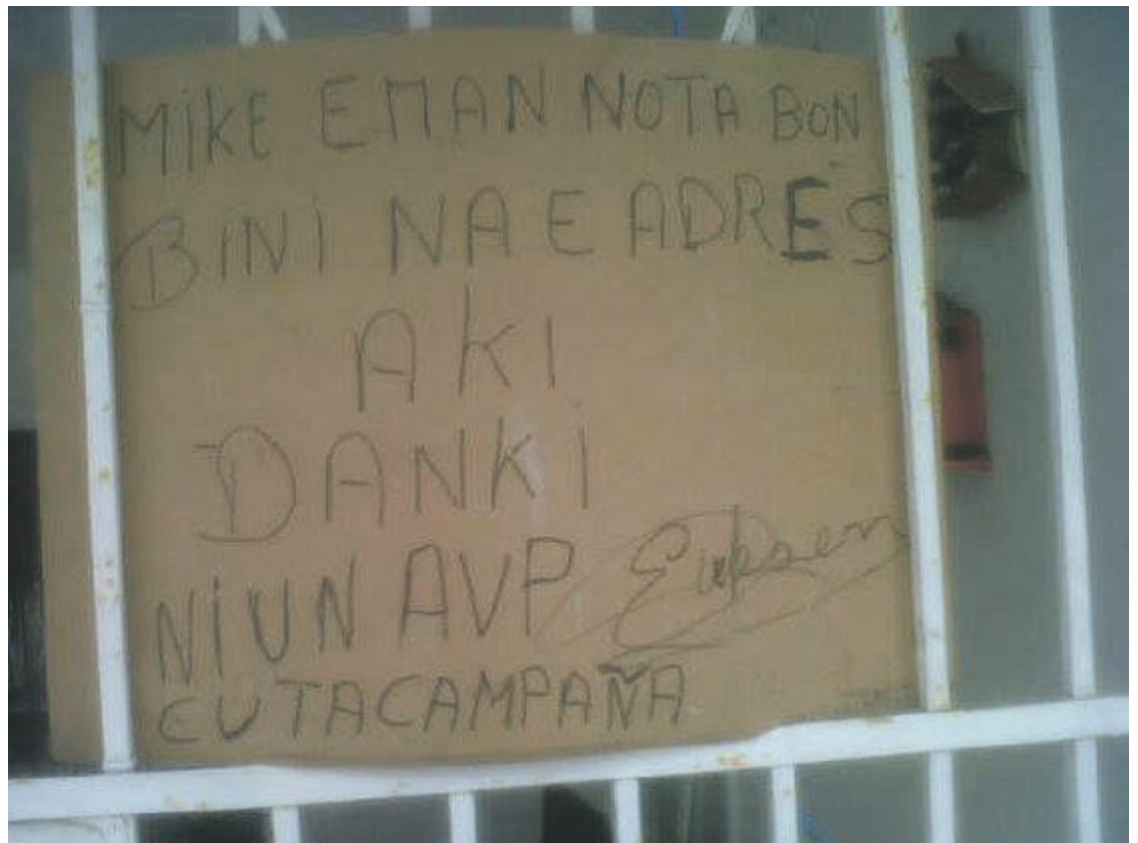 MIKE EMAN NOTA BON
BINI NA E ADRES
AKI
DANKI
NIUN AVP
CUTACAMPAÑA